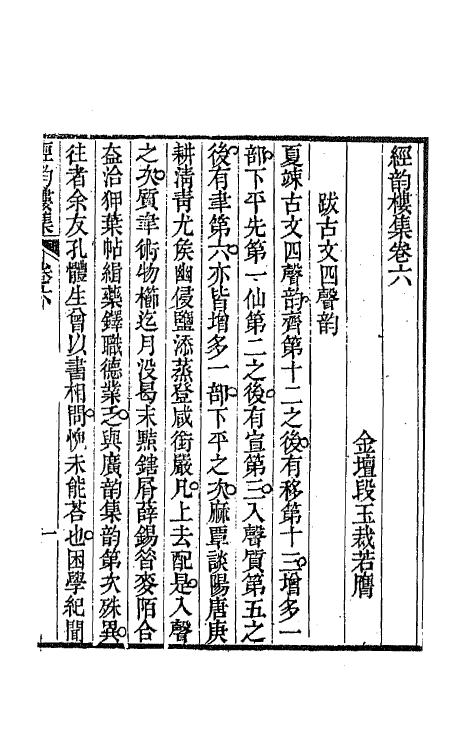 經韵樓集卷六
金壇段玉裁若膺
跋古文四聲韵
夏竦古文四聲韵齊第十二之後有栘第十三增多一
部下平先第一仙第二之後有宣第三入聲質第五之
後有聿第六亦皆增多一部下平之次麻覃談陽唐庚
耕淸靑尤侯幽侵鹽添蒸登咸銜嚴凡上去配是入聲
之次質聿術物櫛迄月没曷末黠鎋屑薛錫昔麥陌合
盍洽狎葉帖緝藥鐸職德業乏與廣韵集韵第次殊異
往者余友孔體生曾以書相問愧未能荅也困學紀聞
經韵樓集
卷六
一